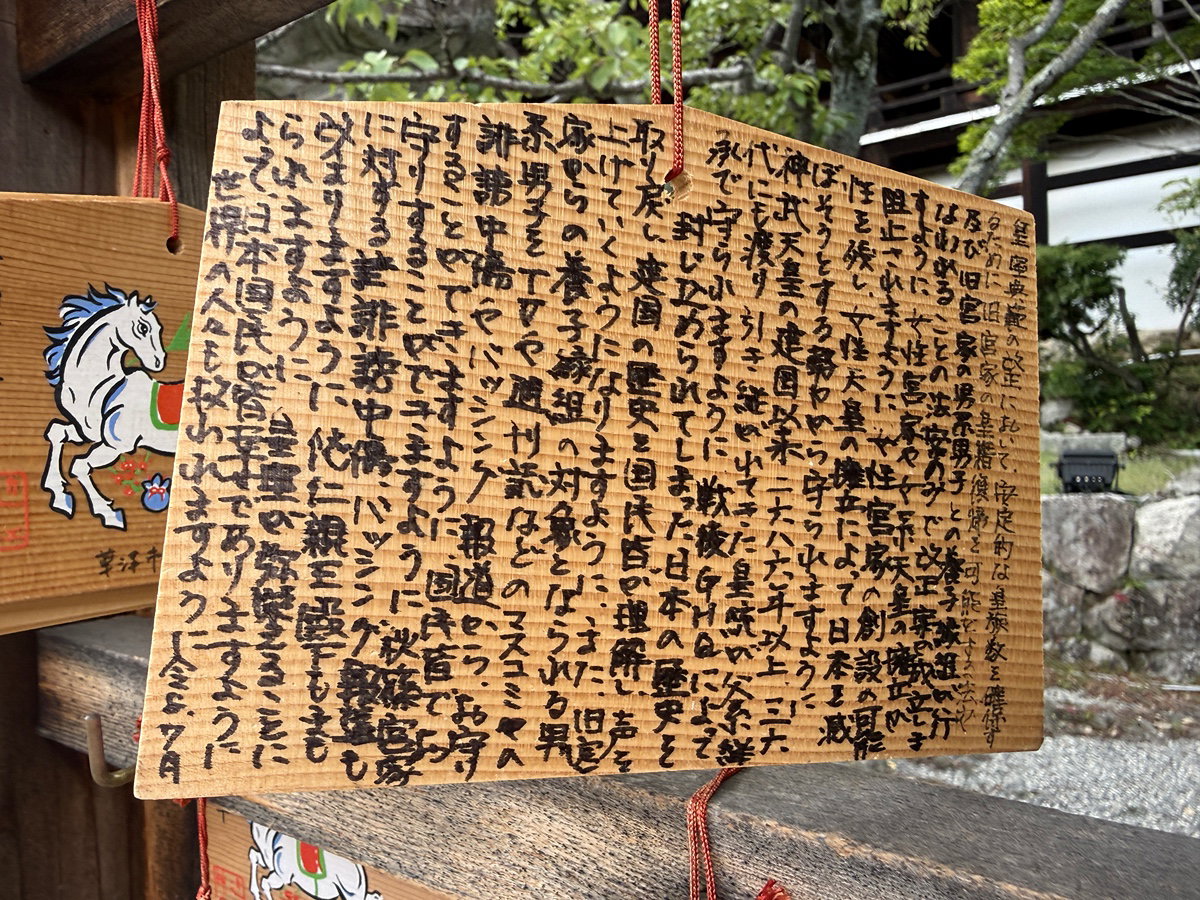 皇室典範の改正において、安定的な皇族数を確保す
るために 旧宮家の皇籍復帰を可能とする法や
及び旧宮家の男系男子との養子縁組の行
なわれることの法案のみで改正案の成立しま
すように 女性宮家や女系天皇の擁立が
阻止されますように 女性宮家の創設の可能
性を残し、女性天皇の擁立によって日本を滅
ぼそうとする勢力から守られますように
神武天皇の建国以来 二六八六年以上 三六
代にも渡り 引き継がれてきた皇統の父系継
承で守られますように 戦後GHQによって
封じ込められてしまった日本の歴史を
取り戻し 建国の歴史を国民皆が理解し 声を
上げていくようになりますように、また、旧宮
家からの養子縁組の対象となられる男
系男子をTVや週刊誌などのマスコミへの
誹謗中傷やバッシング 報道から、お守
することのできますように国民皆で
守りすることのできますように 秋篠宮家
に対する 誹謗中傷、バッシング報道も
収まりますように 悠仁親王殿下もまも
られますように 皇室の弥栄ることに
よって、日本国民の皆幸せでありますように
世界の人々も救われますように 令和8.7月
草津市